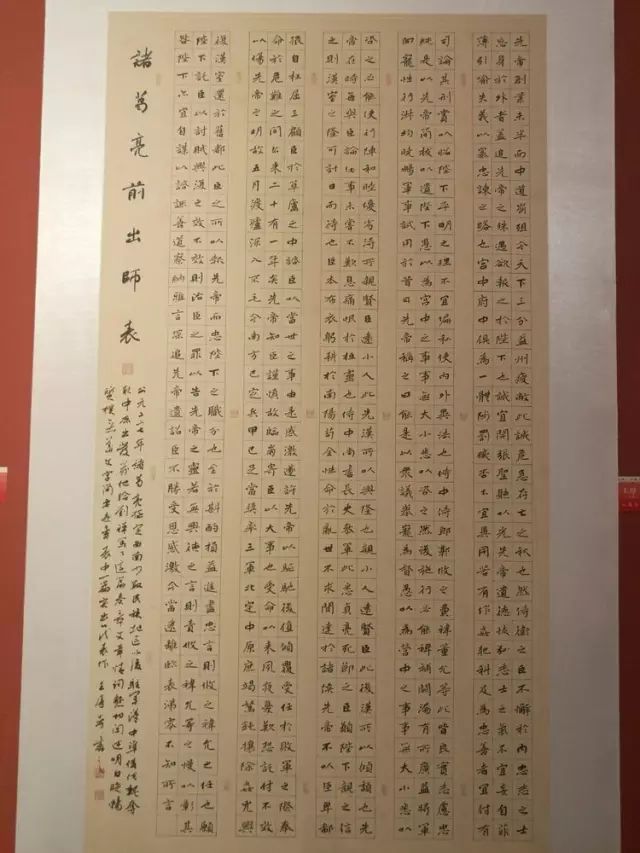 先帝創業未半而中道崩殂今天下三分益州疲敝此誠危急存亡之秋也然侍衛之臣不懈於內忠志之士
忘身於外者蓋追先帝之殊遇欲報之於陛下也誠宜開張聖聽以光先帝遺德恢弘志士之氣不宜妄自菲
薄引喻失義以塞忠諫之路也宮中府中俱為一體陟罰臧否不宜異同若有作姦犯科及為忠善者宜付有
司論其刑賞以昭陛下平明之理不宜偏私使內外異法也侍中侍郎郭攸之費禕董允等此皆良實志慮忠
純是以先帝簡拔以遺陛下愚以為宮中之事事無大小悉以咨之然後施行必能裨補闕漏有所廣益將軍
向寵性行淑均曉暢軍事試用於昔日先帝稱之曰能是以眾議舉寵為督愚以為營中之事事無大小悉以
咨之必能使行陣和睦優劣得所親賢臣遠小人此先漢所以興隆也親小人遠賢臣此後漢所以傾頹也先
帝在時每與臣論此事未嘗不歎息痛恨於桓靈也侍中尚書長史參軍此悉貞亮死節之臣願陛下親之信
之則漢室之隆可計日而待也臣本布衣躬耕於南陽苟全性命於亂世不求聞達於諸侯先帝不以臣卑鄙
猥自枉屈三顧臣於草廬之中諮臣以當世之事由是感激遂許先帝以驅馳後值傾覆受任於敗軍之際奉
命於危難之間爾來二十有一年矣先帝知臣謹慎故臨崩寄臣以大事也受命以來夙夜憂歎恐託付不效
以傷先帝之明故五月渡瀘深入不毛今南方已定兵甲已足當獎率三軍北定中原庶竭駑鈍攘除姦兇興
復漢室還於舊都此臣之所以報先帝而忠陛下之職分也至於斟酌損益進盡忠言則攸之禕允之任也願
陛下託臣以討賊興漢之效不效則治臣之罪以告先帝之靈若無興德之言則責攸之禕允等之慢以彰其
咎陛下亦宜自謀以諮諏善道察納雅言深追先帝遺詔臣不勝受恩感激今當遠離臨表涕零不知所言
諸葛亮前出師表
公元二二七年諸葛亮 定西南少數民族地區 後駐軍漢中準備伐魏
中原出發前他給劉禪寫了這篇表章文章情詞懇切 明白曉暢
質樸 表中一篇突出的代表作